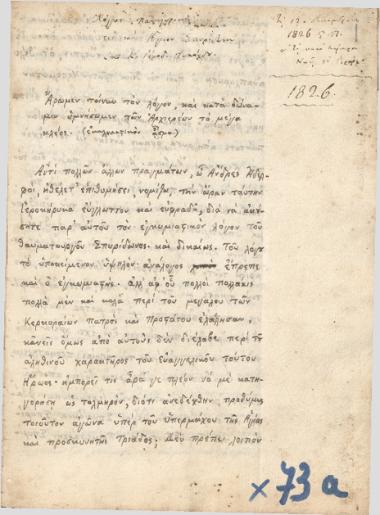 Λόγος Πανηγυρικὸς
εἰς τὸν Ἅγιον Σπυρίδωνα
1826
1826.
Ἄρωμεν τοίνυν τὸν λόγον, καὶ κατὰ δύνα-
μιν ὑμνήσωμεν τῶν Ἀρχιερέων τὸ μέγα
κλέος.
Ἀντὶ πολλῶν ἄλλων πραγμάτων, ὦ Ἄνδρες Ἀδελ-
φοὶ, ἠθέλετε ἐπιθυμήσει, νομίζω, τὴν ὥραν ταύτην
Ἱεροκήρυκα εὔγλωττον καὶ εὐφραδῆ, διὰ νὰ ἀκού-
σητε παρ' αὐτοῦ τὸν ἐγκωμιαστικὸν λόγον τοῦ
θαυματουργοῦ Σπυρίδωνος· καὶ δικαίως. Τοῦ λόγου
τὸ ὑποκείμενον ὑψηλόν· ἀνάλογος ἔπρεπε
καὶ ὁ ἐγκωμιαστής. ἀλλ' ἀφ' οὗ πολλοὶ πολλάκις
πολλὰ μὲν καὶ καλὰ περὶ τοῦ μεγάλου τῶν
Κερκυραίων πατρὸς καὶ προστάτου ἐλάλησαν,
κἀνεὶς ὅμως ἀπὸ αὐτοὺς δὲν διέλαβε περὶ τοῦ
ἀληθινοῦ χαρακτῆρος τοῦ εὐαγγελικοῦ τούτου
Ἥρωος· ἠμπορεῖ τις ἆρά γε πλέον νὰ μὲ κατη-
γορήσῃ ὡς τολμηρὸν, διότι ἀνεδέχθην προθύμως
τοιοῦτον ἀγῶνα ὑπὲρ τοῦ ὑπερμάχου τῆς Ἁγίας
καὶ προσκυνητῆς Τριάδος; Δὲν πρέπει λοιπὸν
x 73 a